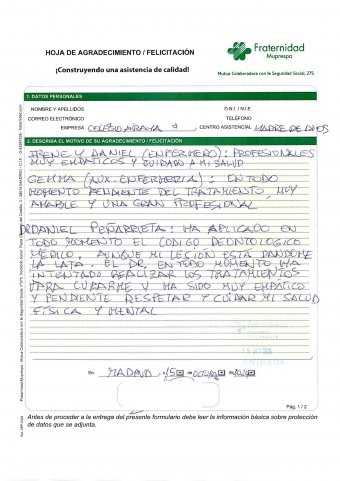 HOJA DE AGRADECIMIENTO / FELICITACIÓN
¡Construyendo una asistencia de calidad!
Fraternidad
Muprespa
Mutua Colaboradora con la Seguridad Social, 275.
1. DATOS PERSONALES
NOMBRE Y APELLIDOS
D.N.I / N.I.E.
CORREO ELECTRÓNICO
TELÉFONO
EMPRESA COLEGIO ARAYA
CENTRO ASISTENCIAL MADRE DE DIOS
2. DESCRIBA EL MOTIVO DE SU AGRADECIMIENTO / FELICITACIÓN
IRENE Y DANIEL (ENFERMERO): PROFESIONALES
MUY EMPATICOS Y CUIDADO A MI SALUD
GEMMA (AUX. ENFERMERIA): EN TODO
MOMENTO PENDIENTE DEL TRATAMIENTO, MUY
AMABLE Y UNA GRAN PROFESIONAL
DR DANIEL PEÑARRIETA: HA APLICADO EN
TODO MOMENTO EL CODIGO DEONTOLOGICO
MÉDICO, AUNQUE MI LECIÓN ESTÁ DANDOME
LA LATA, EL DR, EN TODO MOMENTO, HA
INTENTADO REALIZAR LOS TRATAMIENTOS
PARA CURARME Y HA SIDO MUY EMPATICO
Y PENDIENTE RESPETAR Y CUIDAR MI SALUD
FÍSICA Y MENTAL
Fraternidad
ENTRADA
En MADRID 15 de OCTUBRE de
Pág. 1 / 2
Antes de proceder a la entrega del presente formulario debe leer la información básica sobre protección
de datos que se adjunta.